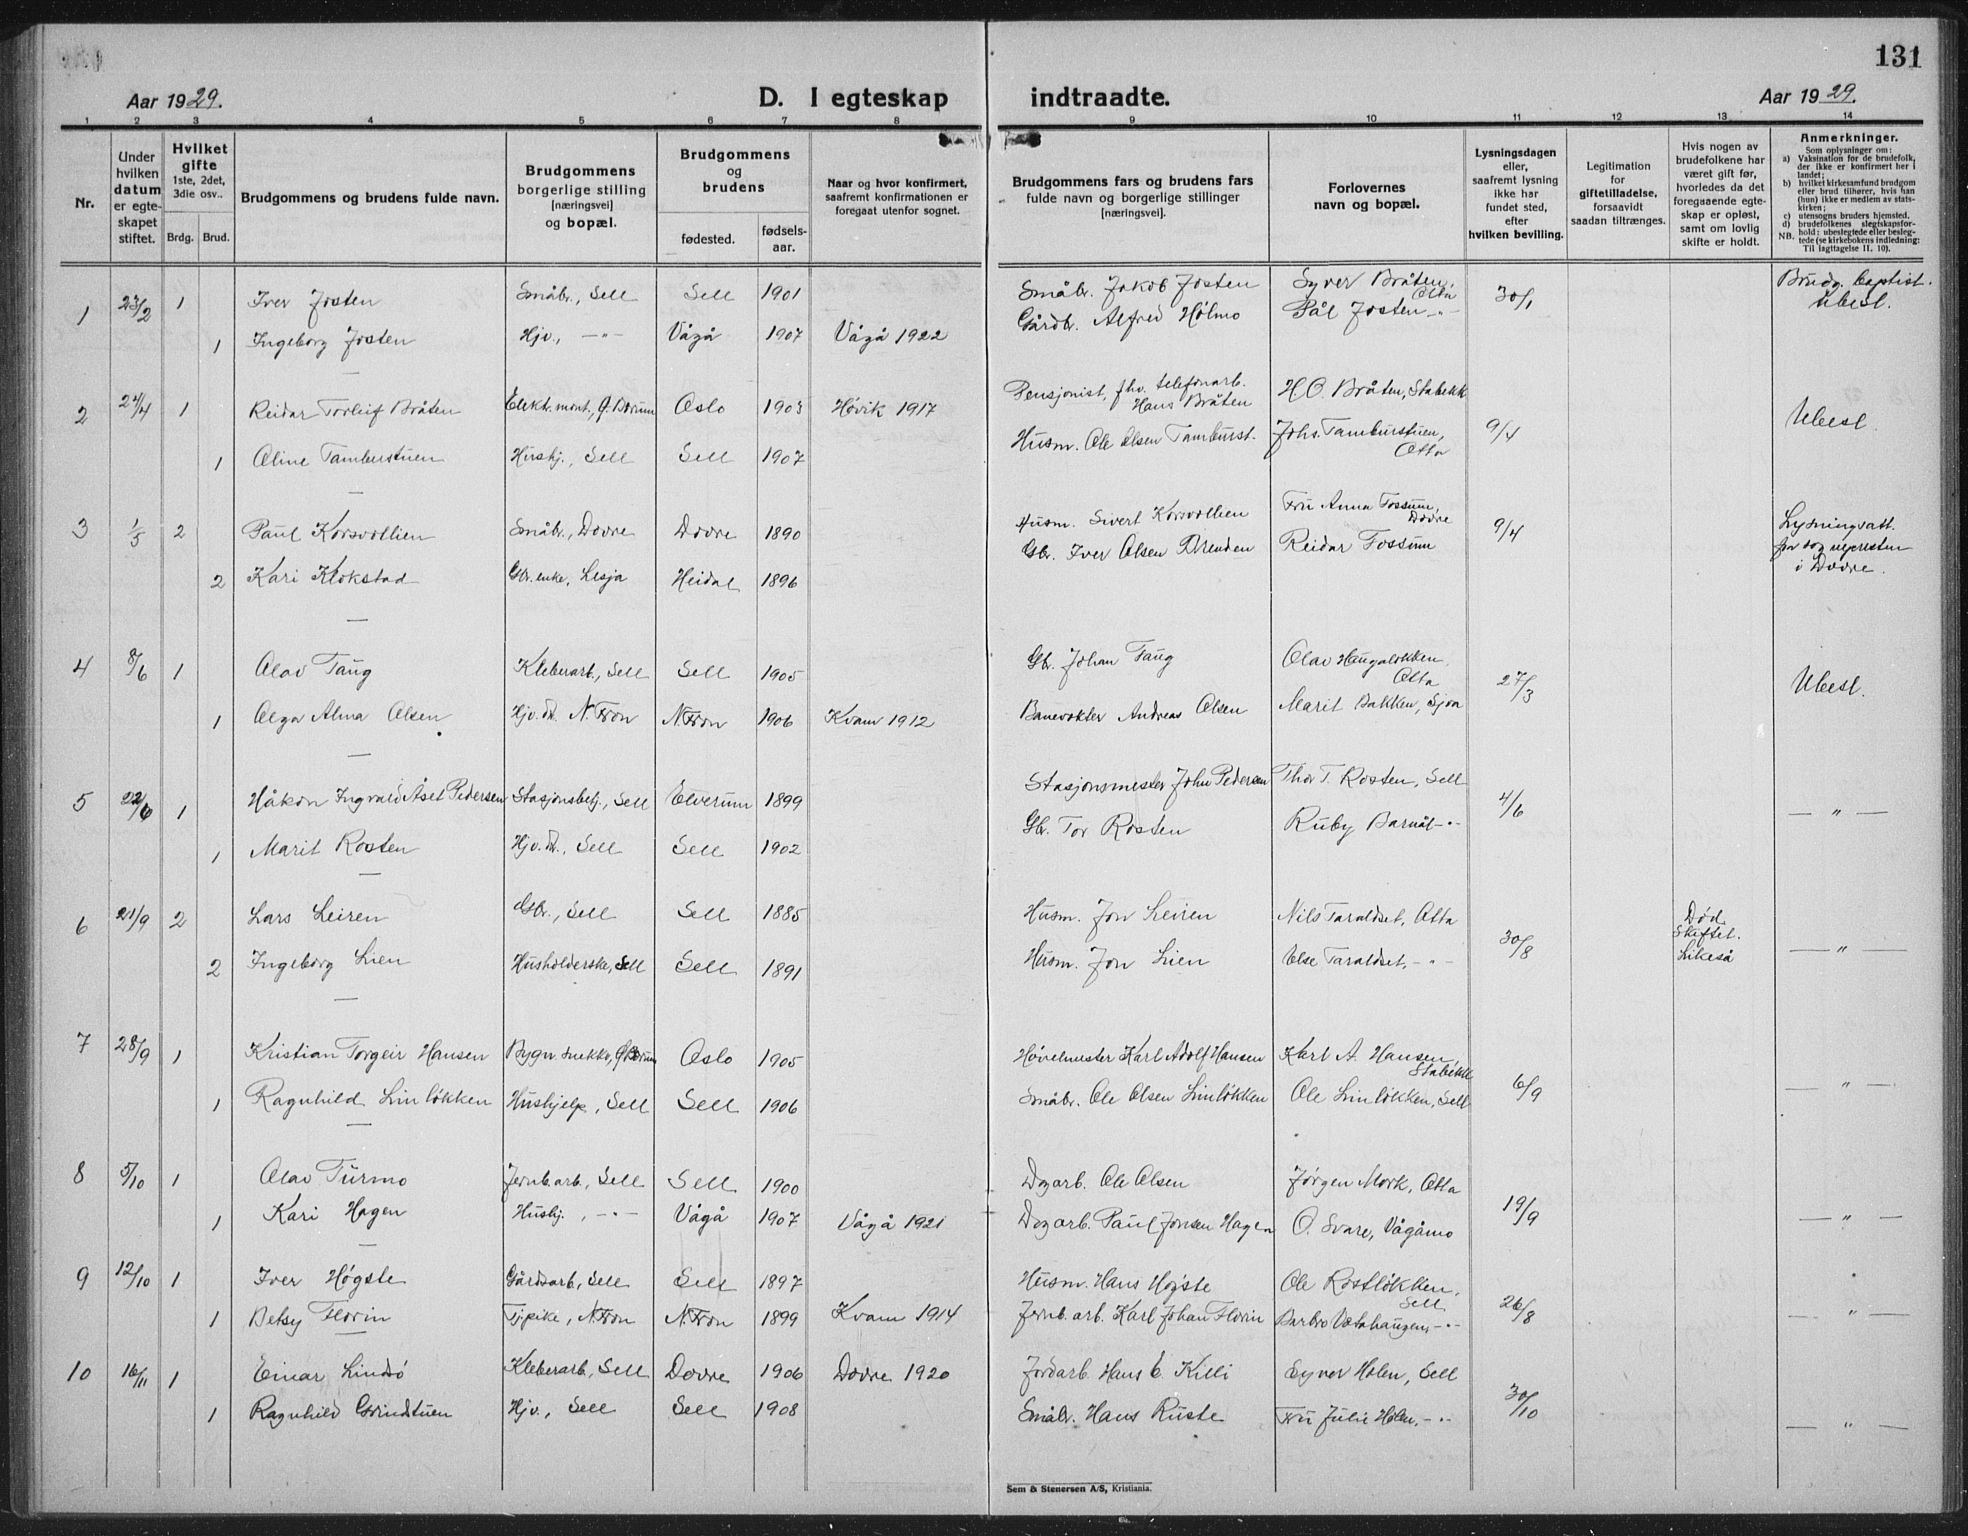 131
Aar 1929.
D. I egteskap indtraadte.
Aar 1929.
1 2 3 4 5 6 7 8 9 10 11 12 13 14
Nr.
Under hvilken datum er egteskapet stiftet.
Hvilket gifte 1ste, 2det, 3die osv..
Brdg. Brud.
Brudgommens og brudens fulde navn.
Brudgommens borgerlige stilling [næringsvei] og bopæl.
Brudgommens og brudens
fødested. fødselsaar.
Naar og hvor konfirmert, saafremt konfirmationen er foregaat utenfor sognet.
Brudgommens fars og brudens fars fulde navn og borgerlige stillinger [næringsvei].
Forlovernes navn og bopæl.
Lysningsdagen eller, saafremt lysning ikke har fundet sted, efter hvilken bevilling.
Legitimation for giftetilladelse, forsaavidt saadan tiltrænges.
Hvis nogen av brudefolkene har været gift før, hvorledes da det foregaaende egteskap er opløst, samt om lovlig skifte er holdt.
Anmerkninger.
Som oplysninger om:
a) Vaksination for de brudefolk, der ikke er konfirmert her i landet;
b) hvilket kirkesamfund brudgom eller brud tilhører, hvis han (hun) ikke er medlem av statskirken;
c) utensogns bruders hjemsted.
d) brudefolkenes slegtskapsforhold: ubeslegtede eller beslegtede (se kirkebokens indledning:
NB. Til Iagttagelse II. 10).
1 23/2 1 Iver Josten Småbr., Sell Sell 1901 Småbr. Jakob Josten Syver Bråten, Otta 30/1 Brudg. baptist. Ubesl.
1 Ingeborg Josten Hjv., —"— Vågå 1907 Vågå 1922 Gårdbr. Alfred Holmo Pål Josten —"—
2 24/4 1 Reidar Torleif Bråten Elektr. mont., Ø. Bærum Oslo 1903 Høvik 1917 Pensjonist, fhv. telefonarb. Hans Bråten H.O. Bråten, Stabekk 9/4 Ubesl.
1 Oline Tamburstuen Hushj., Sell Sell 1907 Husm. Ole Olsen Tamburst. Johs. Tamburstuen, Otta
3 1/5 2 Paul Korsvollien Småbr., Dovre Dovre 1890 Husm. Sivert Korsvollien Fru Anna Fossum, Dovre 9/4 Lysningsatt. fra sognepresten i Dovre.
2 Kari Klokstad Gbr. enke, Lesja Heidal 1896 Gbr. Iver Olsen Brenden Reidar Fossum
4 8/6 1 Olav Taug Kleberarb., Sell Sell 1905 Gbr. Johan Taug Olav Haugaløkken, Otta 27/3 Ubesl.
1 Olga Alma Olsen Hjv. dt. N. Fron N. Fron 1906 Kvam 1912 Banevokter Andreas Olsen Marit Bakken, Sjoa
5 22/6 1 Håkon Ingvald Åset Pedersen Stasjonsbetj., Sell Elverum 1899 Stasjonsmester John Pedersen Thor T. Rosten, Sell 4/6 —"—
1 Marit Rosten Hjv. dt., Sell Sell 1902 Gbr. Tor Rosten Ruby Barnål —"—
6 21/9 2 Lars Leiren Gbr., Sell Sell 1885 Husm. Jon Leiren Nils Taraldset, Otta 30/8 Død Skiftet. —"—
2 Ingeborg Lien Husholderske, Sell Sell 1891 Husm. Jon Lien Else Taraldset, —"— Likeså
7 28/9 1 Kristian Torgeir Hansen Bygn. snekker, Ø. Bærum Oslo 1905 Høvelmester Karl Adolf Hansen Karl A. Hansen, Stabekk 6/9 —"—
1 Ragnhild Linløkken Hushjelp, Sell Sell 1906 Småbr. Ole Olsen Linløkken Ole Linløkken, Sell
8 5/10 1 Olav Turmo Jernb. arb., Sell Sell 1900 Dagarb. Ole Olsen Jørgen Mork, Otta 19/9 —"—
1 Kari Hagen Hushj., —"— Vågå 1907 Vågå 1921 Dagarb. Paul Jonsen Hagen O. Svare, Vågåmo
9 12/10 1 Iver Høgste Gårdsarb., Sell Sell 1897 Husm. Hans Høgste Ole Rostløkken, Sell 26/8 —"—
1 Betsy Florin Tjpike, N. Fron N. Fron 1899 Kvam 1914 Jernb. arb. Karl Johan Florin Barbro Vetahaugen, —"—
10 16/11 1 Einar Lindsø Kleberarb., Sell Dovre 1906 Dovre 1920 Jordarb. Hans E. Killi Syver Holen, Sell 30/10 —"—
1 Ragnhild Grindstuen Hjv., Sell Sell 1908 Småbr. Hans Ruste Fru Julie Holen, —"—
Sem & Stenersen A/S, Kristiania.